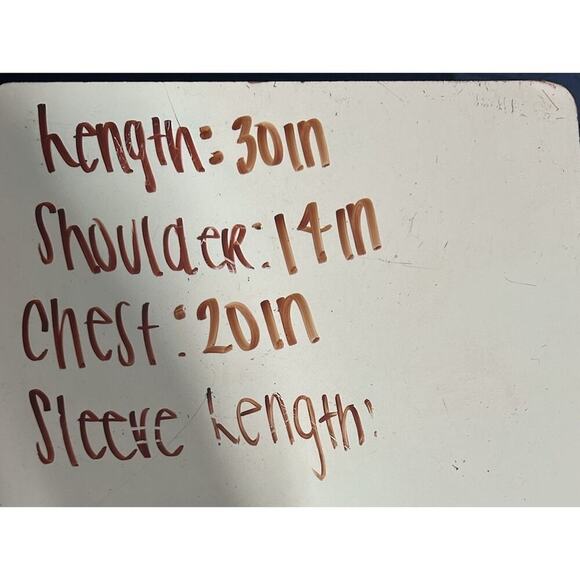 Length: 30in
Shoulder: 14in
Chest: 20in
Sleeve Length: